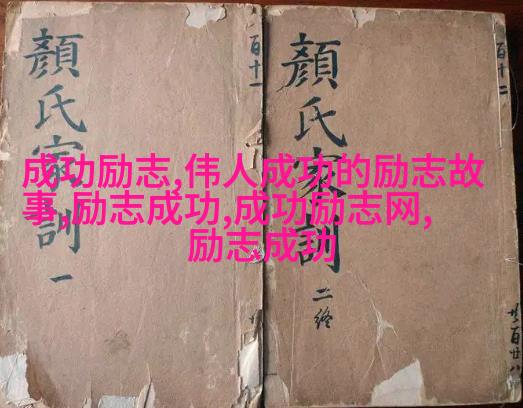 顏氏家訓 一
百十一
顏氏家訓 二終
百十二
成功励志,伟人成功的励志故
事,励志成功,成功励志网,
励志成功